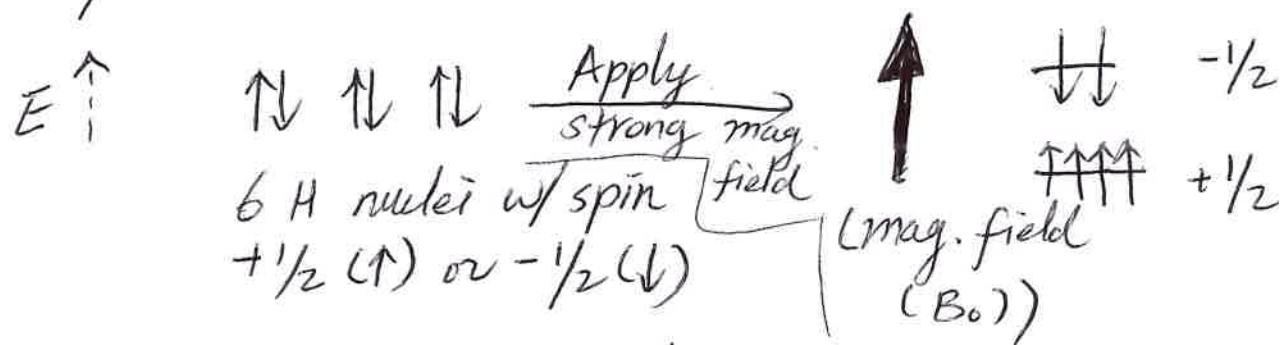 E ↑ ↑↓ ↑↓ ↑↓ Apply ↓↓ -1/2
strong mag.
field ↑↑↑↑ +1/2
6 H nuclei w/ spin
+1/2 (↑) or -1/2 (↓)
(mag. field
(B₀))